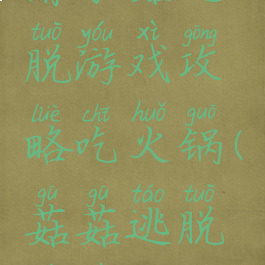 tuō yóu xì gōng
脱游戏攻
lüè chī huǒ guō
略吃火锅(
gū gū táo tuō
菇菇逃脱